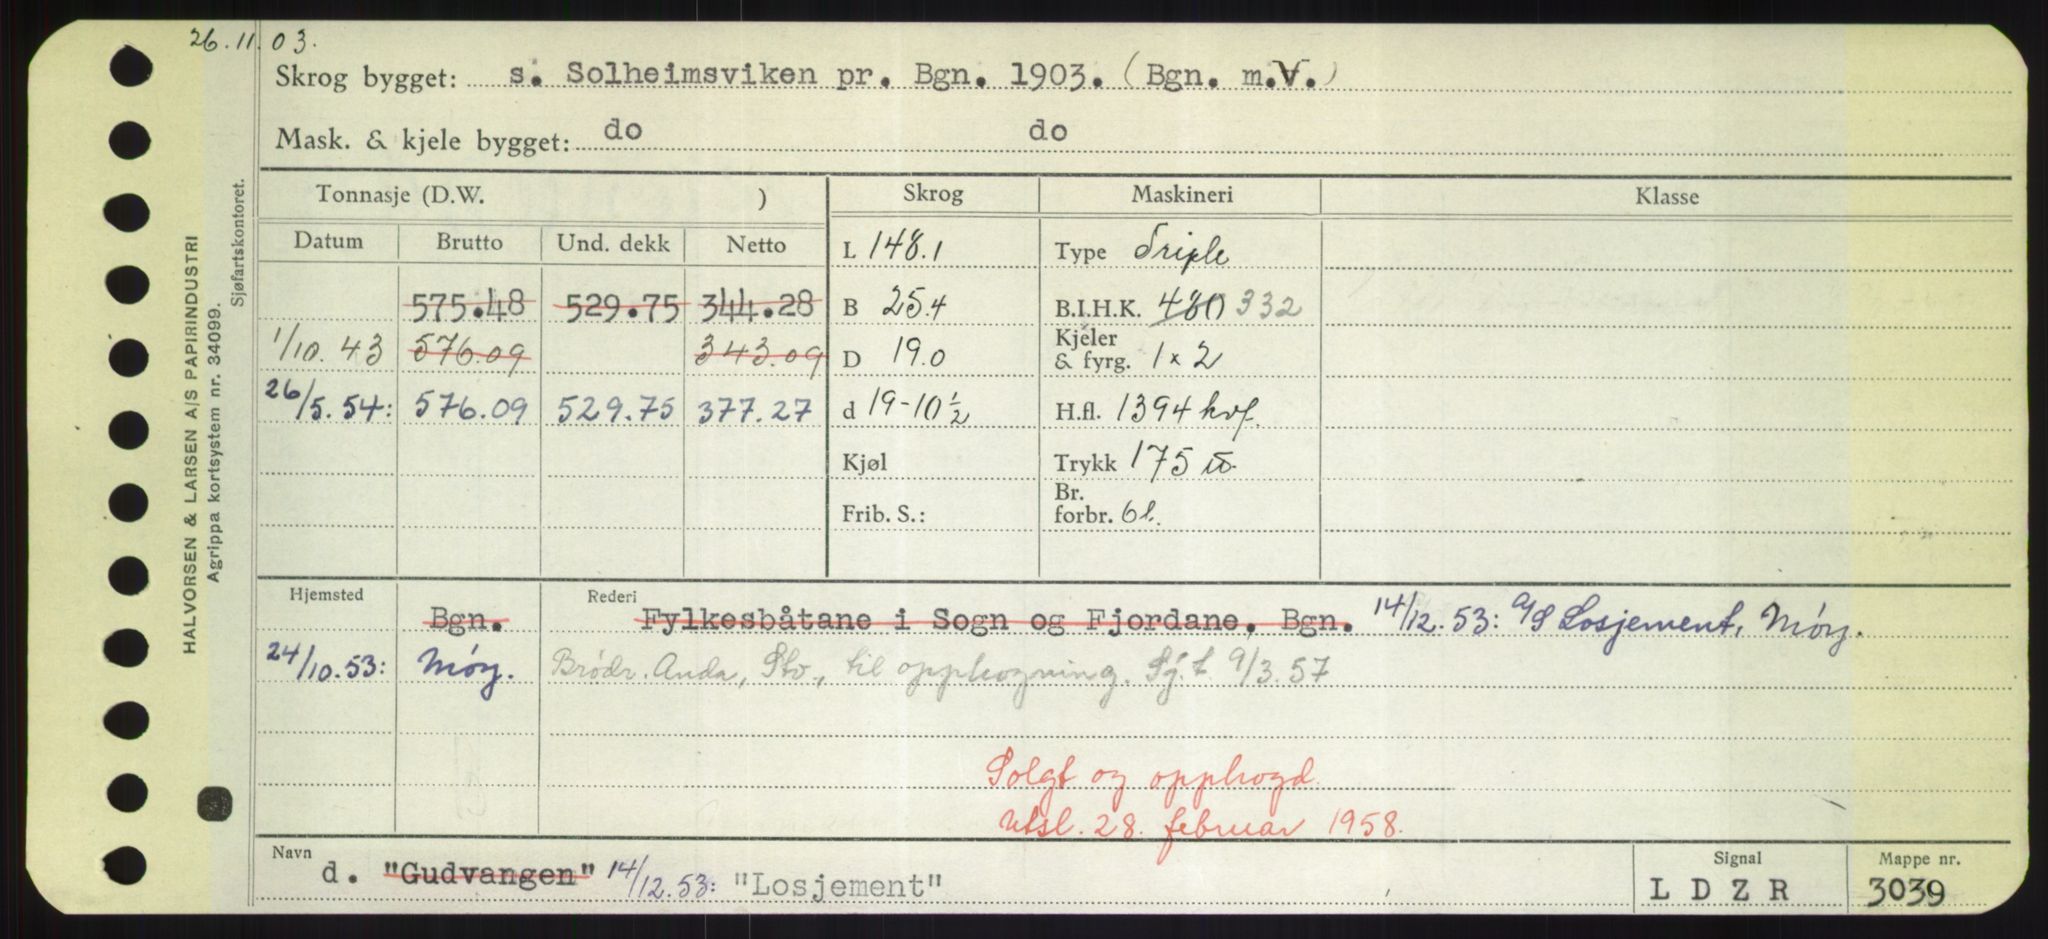 26.11.03.
Skrog bygget: s. Solheimsviken pr. Bgn. 1903. (Bgn. m.V.)
Mask. & kjele bygget: do do
Tonnasje (D.W. ) Skrog Maskineri Klasse
Datum Brutto Und. dekk Netto L 148.1 Type Triple
575.48 529.75 344.28 B 25.4 B.I.H.K. 480 332
1/10.43 576.09 343.09 D 19.0 Kjeler & fyrg. 1x2
26/5.54: 576.09 529.75 377.27 d 19-10½ H.fl. 1394 kvf.
Kjøl Trykk 175 lb.
Frib. S.: Br. forbr. 6 t.
Hjemsted Rederi
Bgn. Fylkesbåtane i Sogn og Fjordane, Bgn. 14/12.53: A/S Losjement, Mosj.
24/10.53: Mosj. Brødr. Anda, Stv., til opphogning. Sj.t. 9/3.57
Solgt og opphogd.
Utsl. 28. februar 1958.
Navn Signal Mappe nr.
d. "Gudvangen" 14/12.53: "Losjement" L D Z R 3039
HALVORSEN & LARSEN A/S PAPIRINDUSTRI
Agrippa kortsystem nr. 34099.
Sjøfartskontoret.